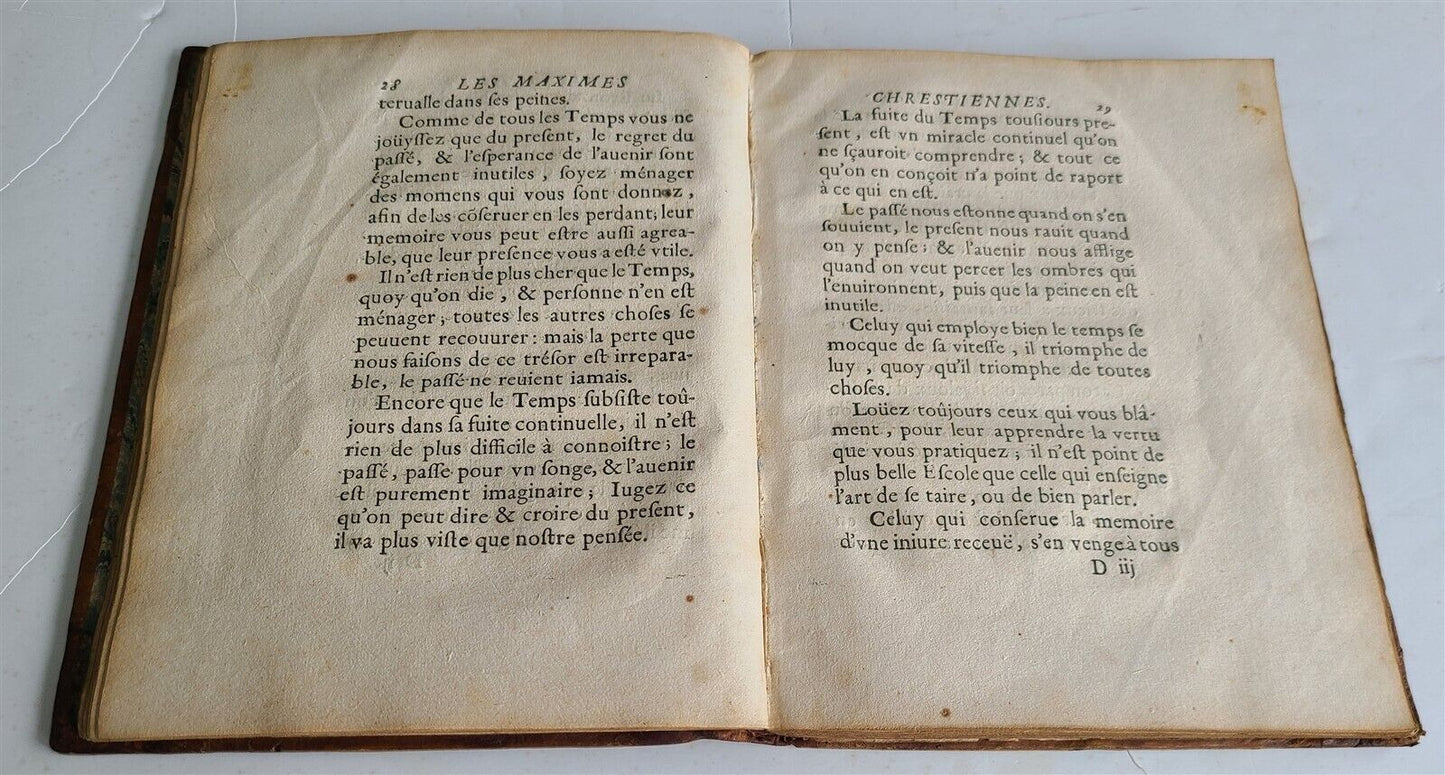 28 LES MAXIMES
terualle dans ſes peines.
Comme de tous les Temps vous ne
joüyſſez que du preſent, le regret du
paſſé, & l'eſperance de l'auenir ſont
également inutiles, ſoyez ménager
des momens qui vous ſont donnez,
afin de les cõſeruer en les perdant; leur
memoire vous peut eſtre auſſi agrea-
ble, que leur preſence vous a eſté vtile.
Il n'eſt rien de plus cher que le Temps,
quoy qu'on die, & perſonne n'en eſt
ménager; toutes les autres choſes ſe
peuuent recouurer: mais la perte que
nous faiſons de ce tréſor eſt irrepara-
ble, le paſſé ne reuient iamais.
Encore que le Temps ſubſiſte toû-
jours dans ſa fuite continuelle, il n'eſt
rien de plus difficile à connoiſtre; le
paſſé, paſſe pour vn ſonge, & l'auenir
eſt purement imaginaire; Iugez ce
qu'on peut dire & croire du preſent,
il va plus viſte que noſtre penſée.
CHRESTIENNES. 29
La fuite du Temps touſiours pre-
ſent, eſt vn miracle continuel qu'on
ne ſçauroit comprendre; & tout ce
qu'on en conçoit n'a point de raport
à ce qui en eſt.
Le paſſé nous eſtonne quand on s'en
ſouuient, le preſent nous rauit quand
on y penſe; & l'auenir nous afflige
quand on veut percer les ombres qui
l'enuironnent, puis que la peine en eſt
inutile.
Celuy qui employe bien le temps ſe
mocque de ſa viteſſe, il triomphe de
luy, quoy qu'il triomphe de toutes
choſes.
Loüez toûjours ceux qui vous blâ-
ment, pour leur apprendre la vertu
que vous pratiquez; il n'eſt point de
plus belle Eſcole que celle qui enſeigne
l'art de ſe taire, ou de bien parler.
Celuy qui conſerue la memoire
d'vne iniure receuë, s'en venge à tous
D iij